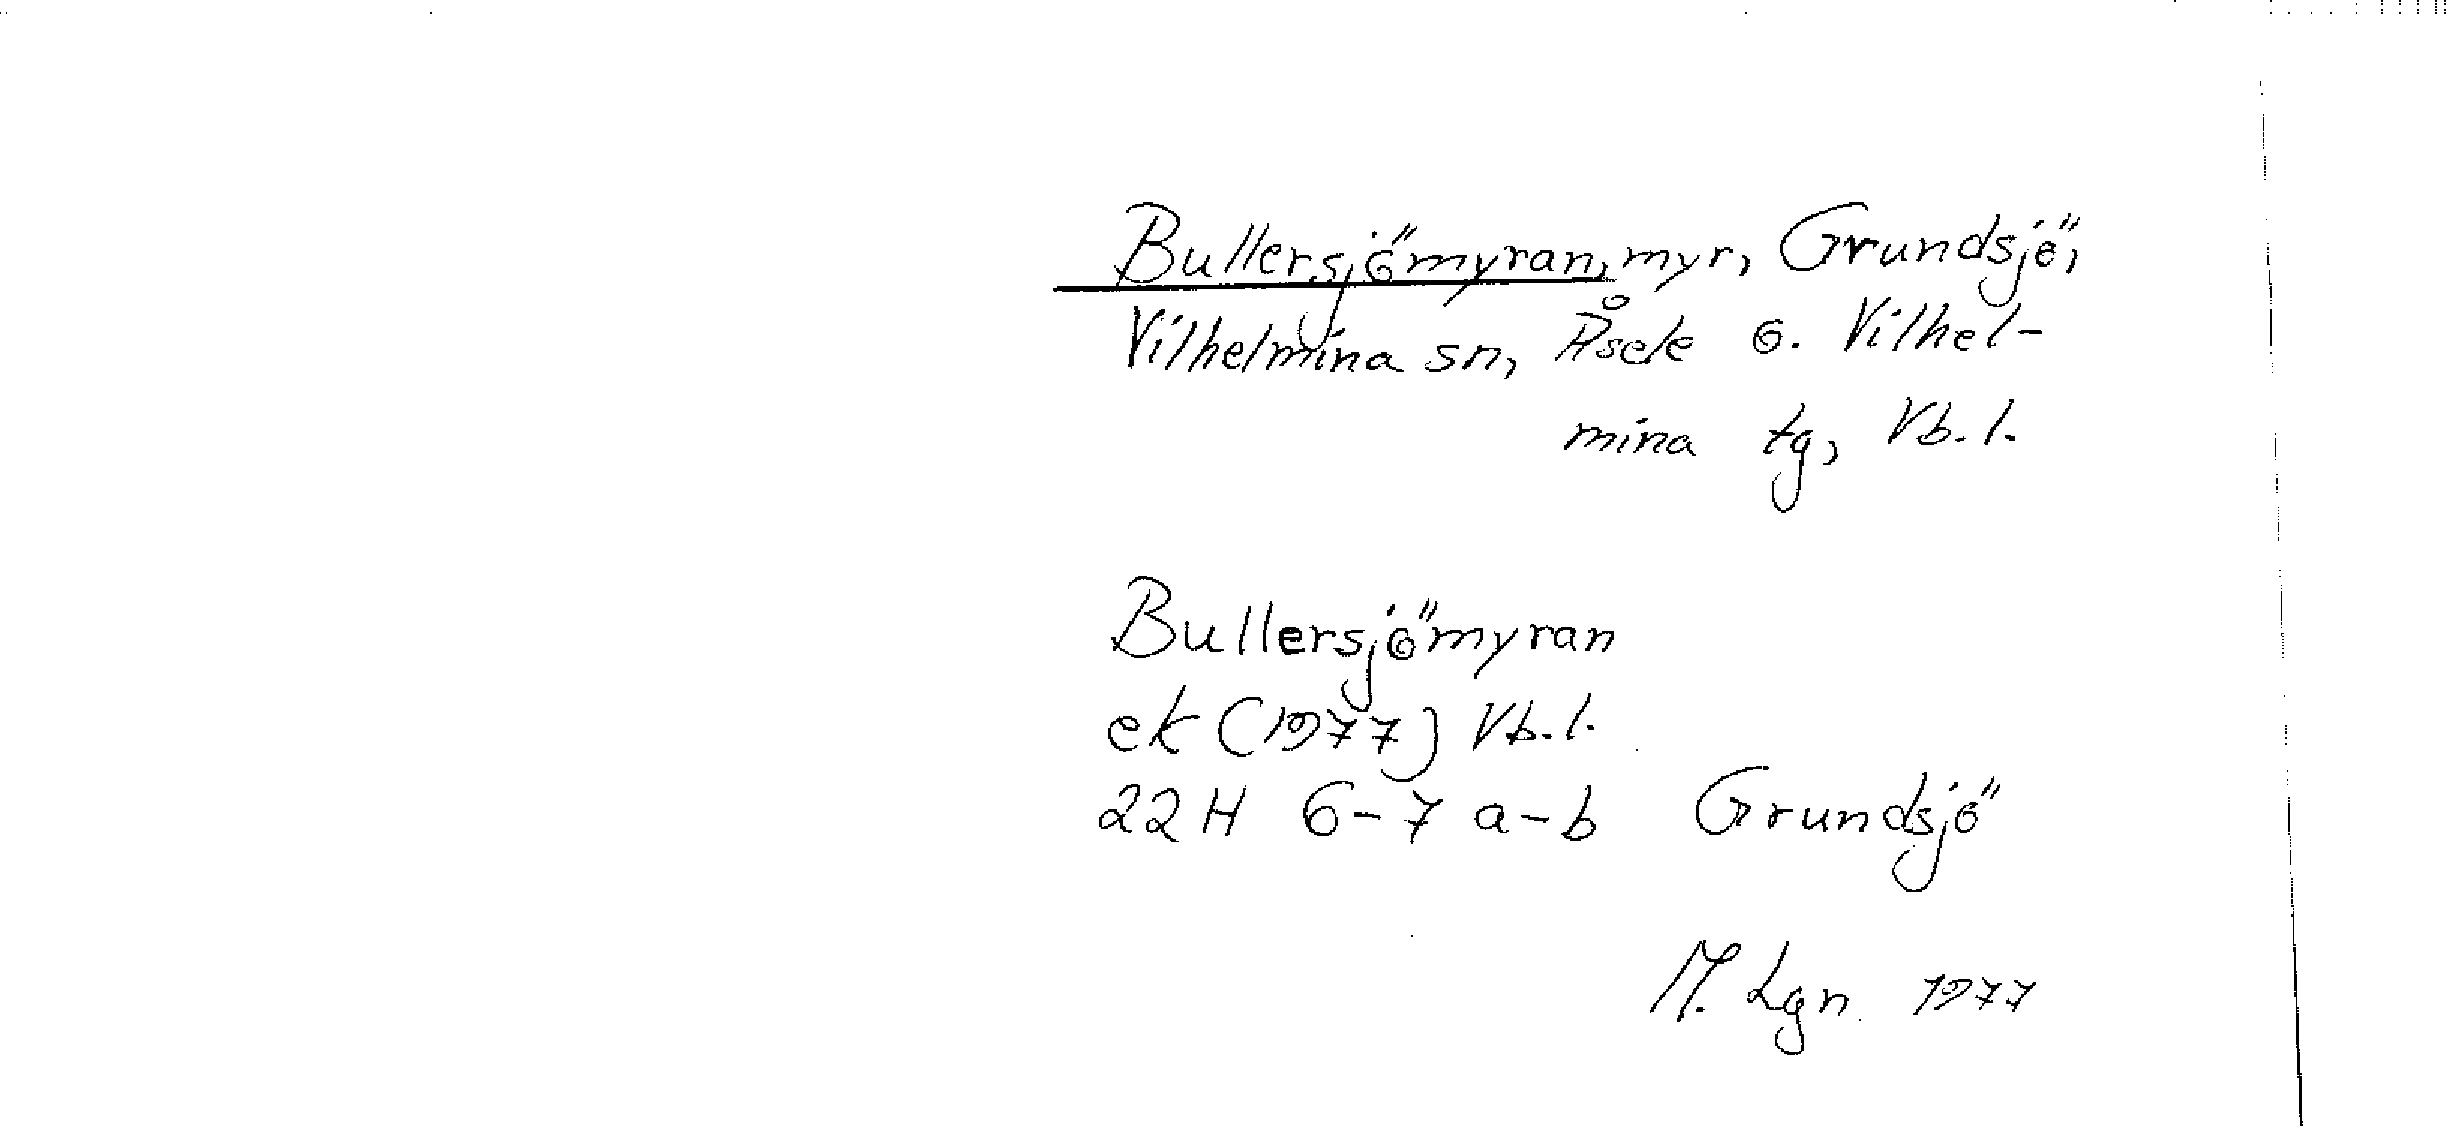 Bullersjömyran, myr, Grundsjö,
Vilhelmina sn, Åsele o. Vilhel-
mina tg, Vb. l.
Bullersjömyran
ek (1977) Vb. l.
22 H 6-7 a-b Grundsjö
M. Lgn 1977